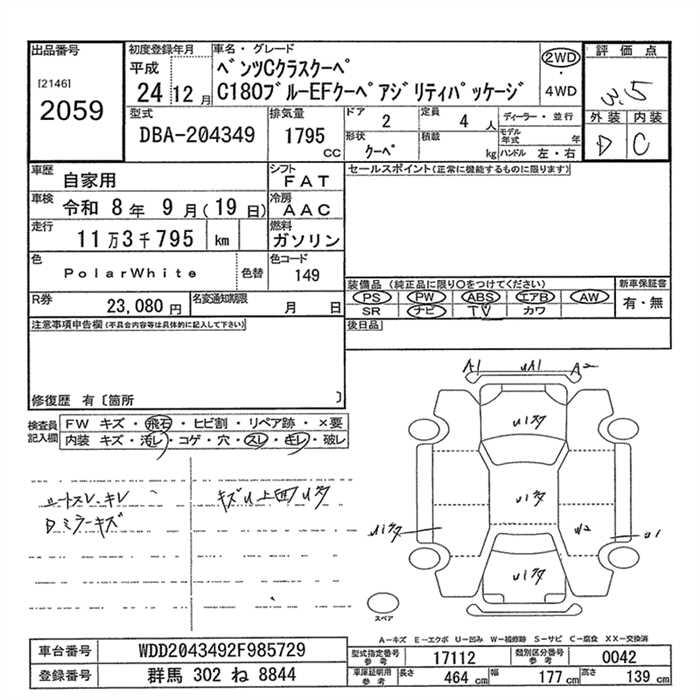 出品番号
[2146]
2059
初度登録年月
平成
24 12月
車名・グレード
ベンツCクラスクーペ
C180ブルーEFクーペアジリティパッケージ
2WD
・
4WD
評価点
3.5
外装 内装
D C
型式
DBA-204349
排気量
1795
cc
ドア 2
定員 4 人
形状 クーペ
積載 kg
ディーラー・並行
モデル年式 年
ハンドル 左・右
車歴 自家用
シフト FAT
車検 令和 8年 9月(19日)
冷房 AAC
走行 11万3千795 km
燃料 ガソリン
色 PolarWhite 色替
色コード 149
R券 23,080円
名変通知期限 月 日
セールスポイント(正常に機能するものに限ります)
装備品 (純正品に限り〇をつけてください)
PS PW ABS エアB AW
SR ナビ TV カワ
新車保証書
有・無
後日品
注意事項申告欄(不具合内容等は具体的に記入して下さい)
修復歴 有〔箇所 〕
検査員記入欄
FW キズ・飛石・ヒビ割・リペア跡・×要
内装 キズ・汚レ・コゲ・穴・スレ・キレ・破レ
シートスレ、キレ
Dミラーキズ
キズU上四Uタ
A1 UA1 A2
U1クタ
U1クタ
U1クタ
U1クタ
U2
U1
スペア
A-キズ E-エクボ U-凹み W-補修跡 S-サビ C-腐食 XX-交換済
車台番号 WDD2043492F985729
登録番号 群馬 302 ね 8844
型式指定番号 参考 17112
類別区分番号 参考 0042
車庫証明用 参考 長さ 464 cm 幅 177 cm 高さ 139 cm